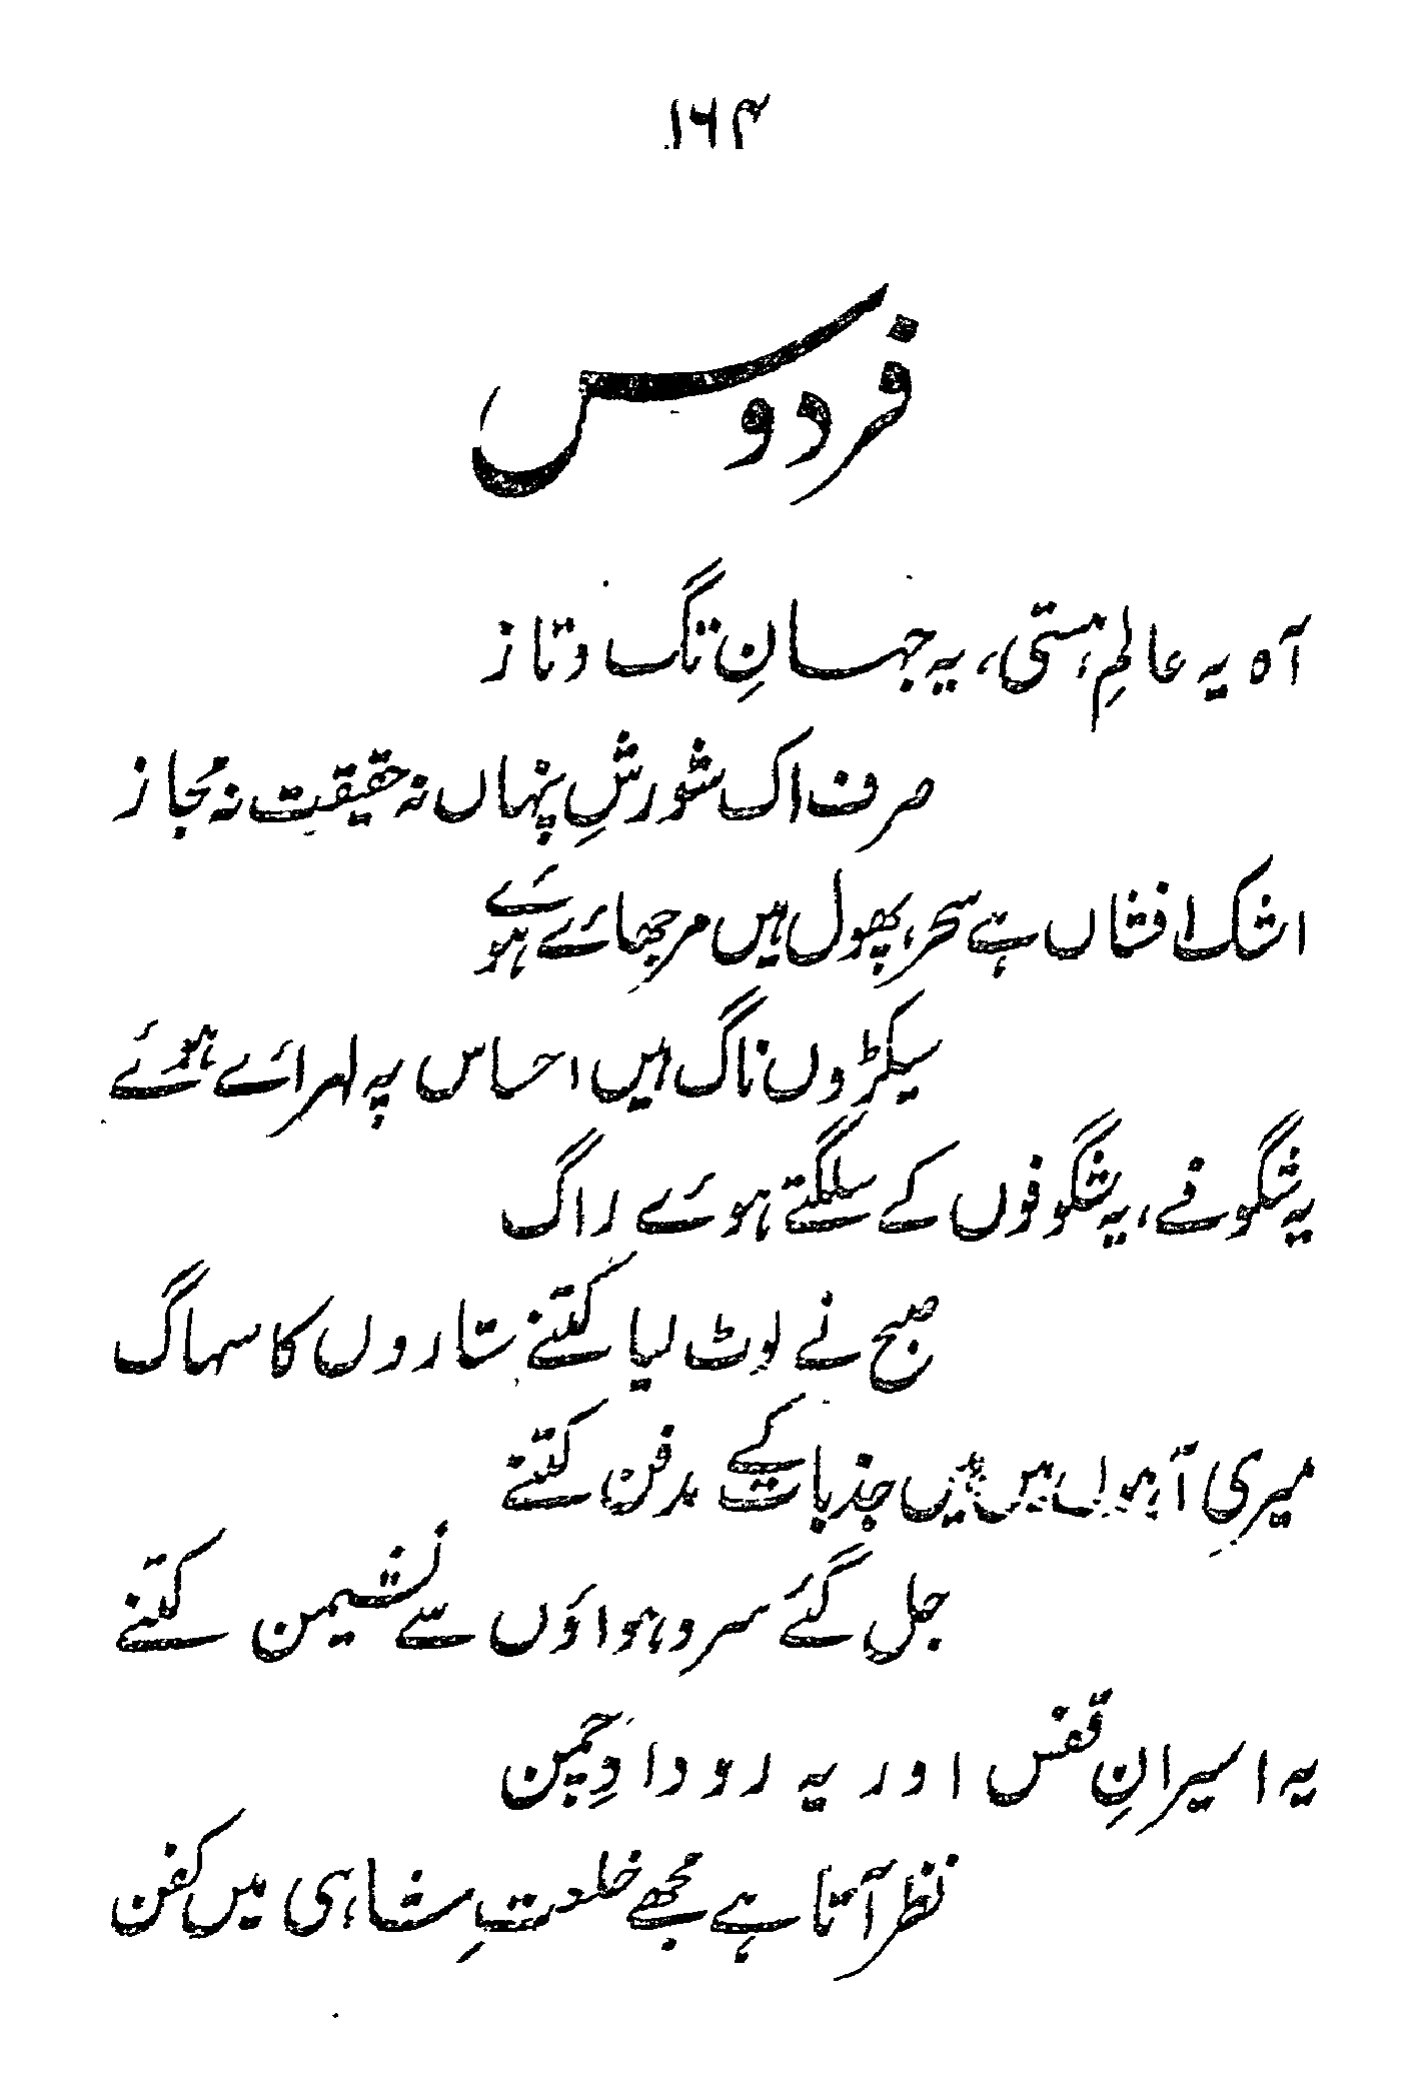 ۱۶۴
فردوس
آہ یہ عالمِ ہستی، یہ جہانِ تگ و تاز
صرف اک شورشِ پنہاں نہ حقیقت نہ مجاز
اشک افشاں ہے سحر، پھول ہیں مرجھائے ہوئے
سیکڑوں ناگ ہیں احساس پہ لہرائے ہوئے
یہ شگوفے، یہ شگوفوں کے سلگتے ہوئے راگ
صبح نے لوٹ لیا کتنے ستاروں کا سہاگ
میری آہوں میں ہیں جذبات کے مدفن کتنے
جل گئے سرد ہواؤں سے نشیمن کتنے
یہ اسیرانِ قفس اور یہ رودادِ چمن
نظر آتا ہے مجھے خلعتِ شاہی میں کفن